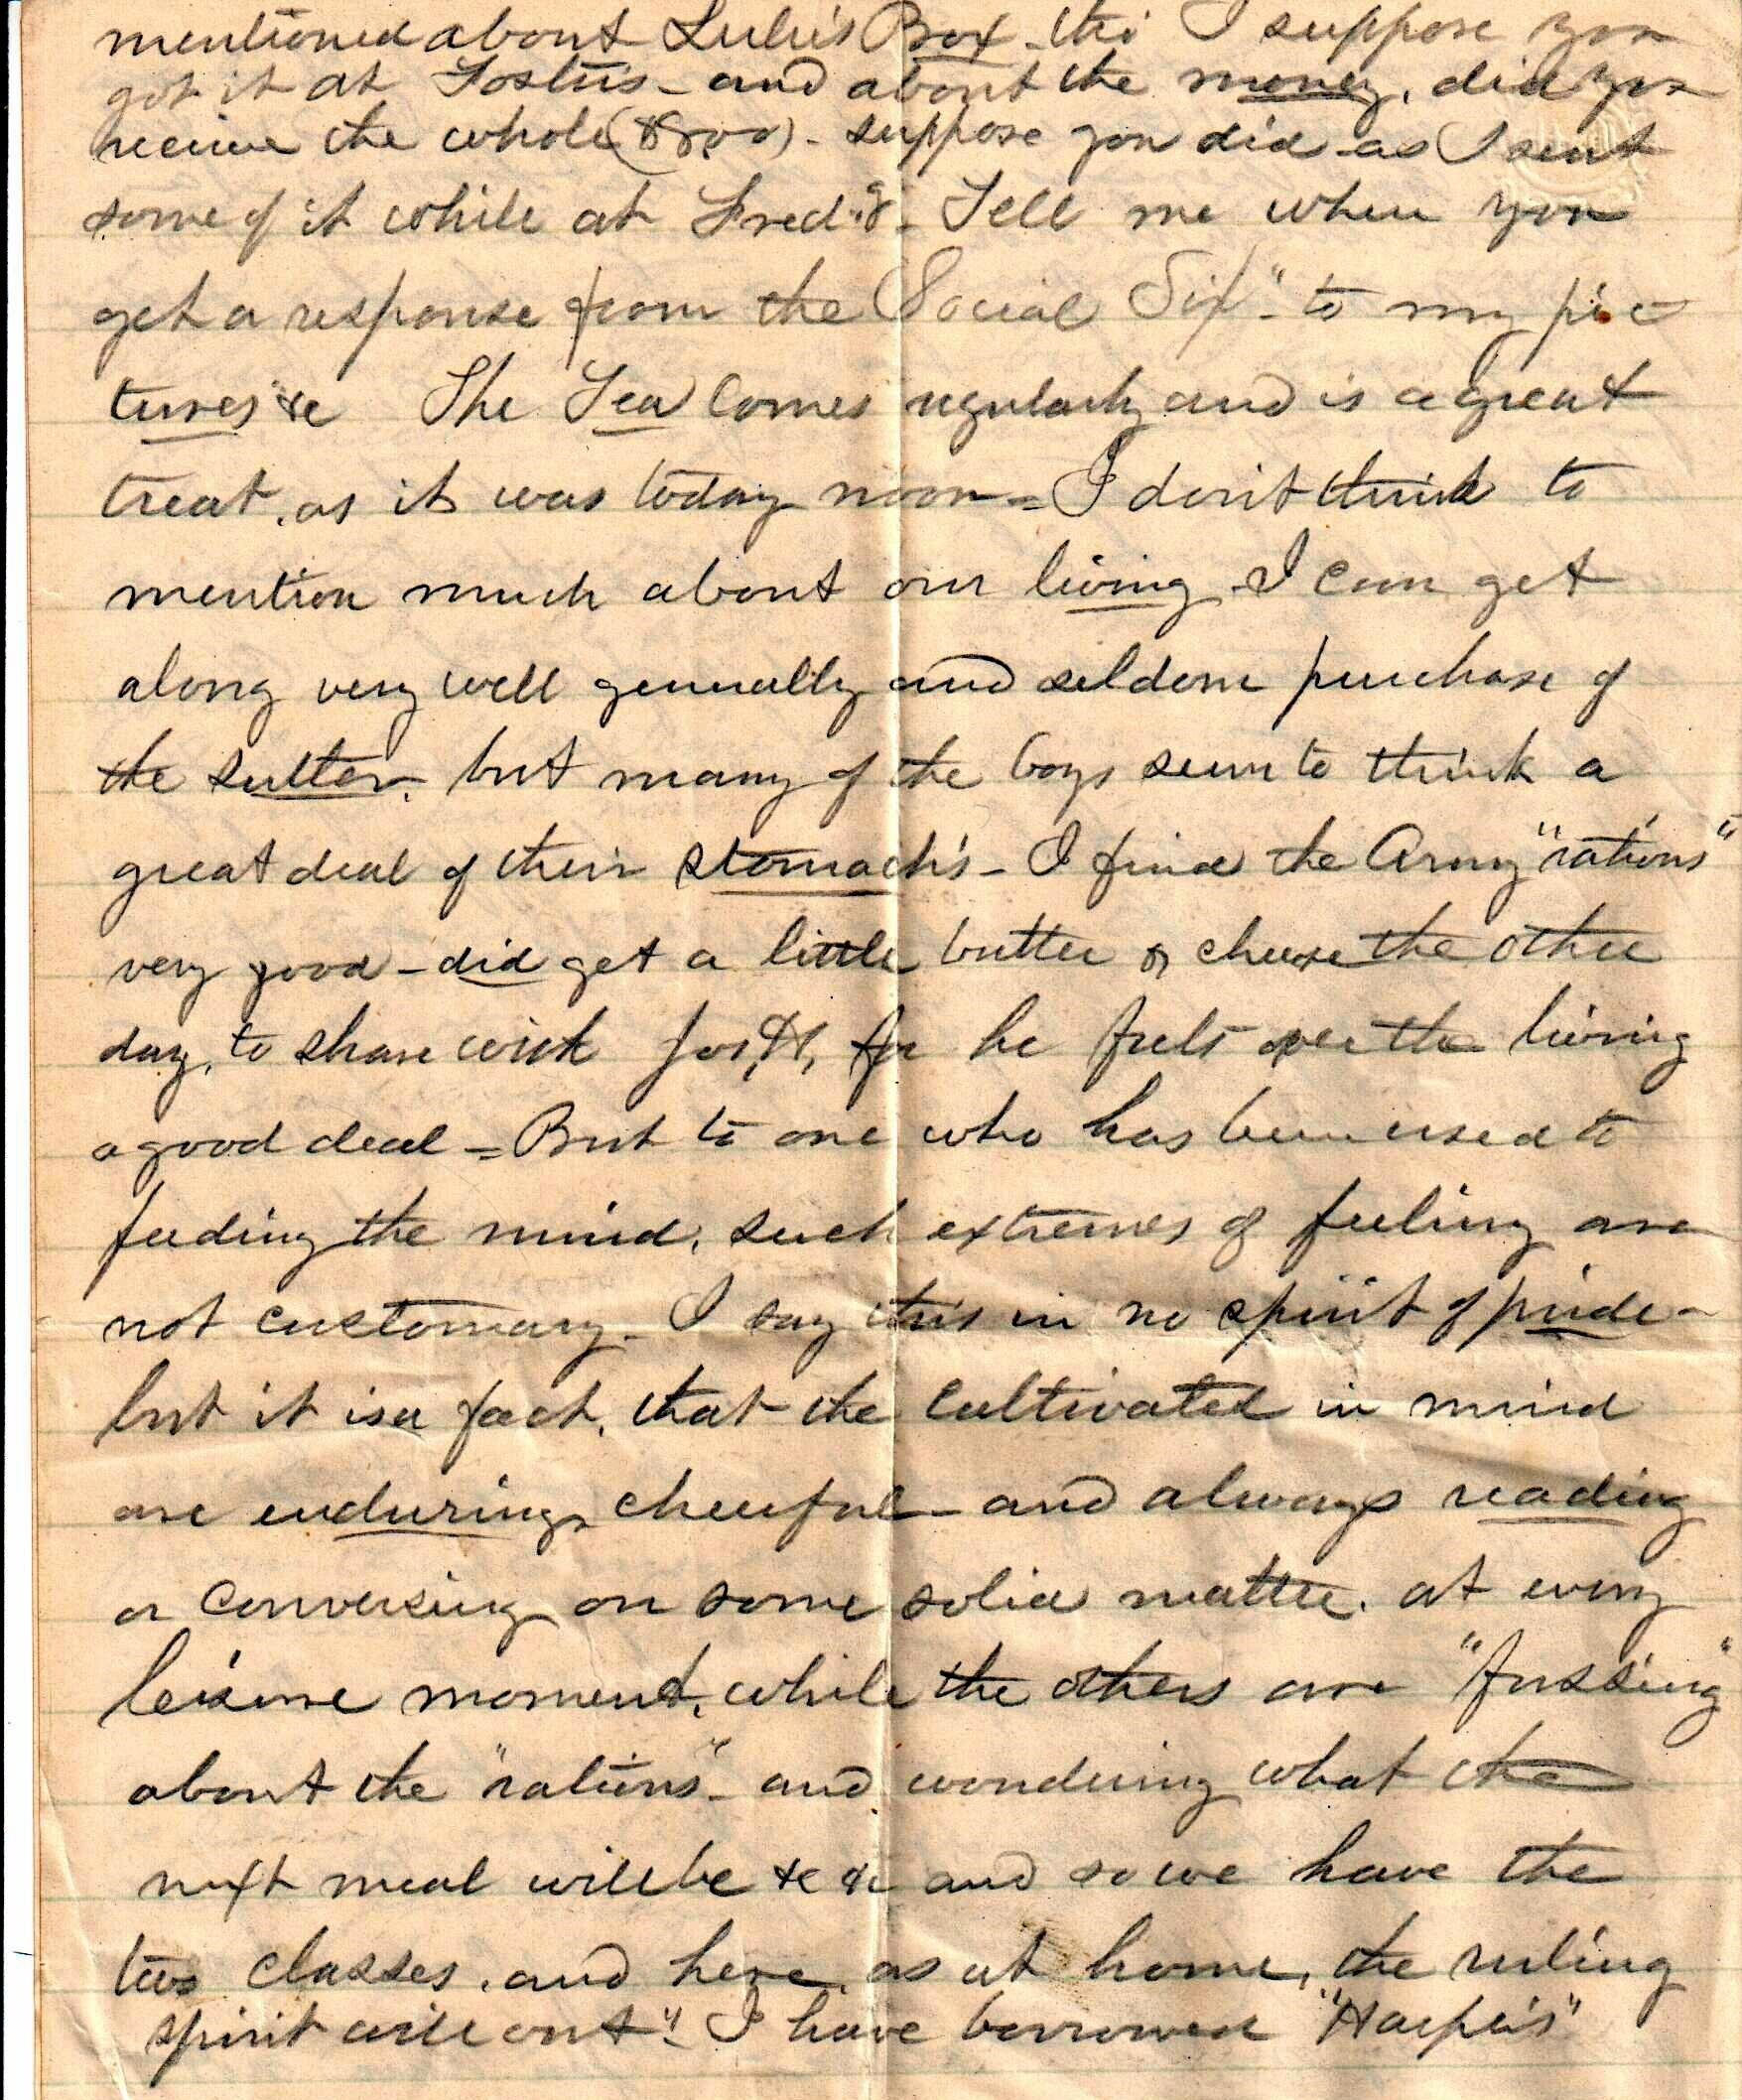 mentioned about Lulu's Box - tho' I suppose you
got it at Foster's - and about the money, did you
receive the whole - suppose you did - as I sent
some of it while at Fred'g - Tell me when you
get a response from the "Social Six" - to my pic-
tures &c The Tea comes regularly and is a great
treat, as it was today noon = I don't think to
mention much about our living - I can get
along very well generally and seldom purchase of
the sutler, but many of the boys seem to think a
great deal of their stomach's - I find the Army "rations"
very good - did get a little butter & cheese the other
day, to share with Jos. H, for he feels over the living
a good deal = But to one who has been used to
feeding the mind, such extremes of feeling are
not customary - I say this in no spirit of pride -
but it is a fact, that the cultivated in mind
are enduring, cheerful - and always reading
or conversing on some solid matter, at every
leisure moment, while the others are "fussing"
about the "rations" - and wondering what the
next meal will be &c &c and so we have the
two classes, and here, as at home, "the ruling
spirit will out" - I have borrowed "Harper's"